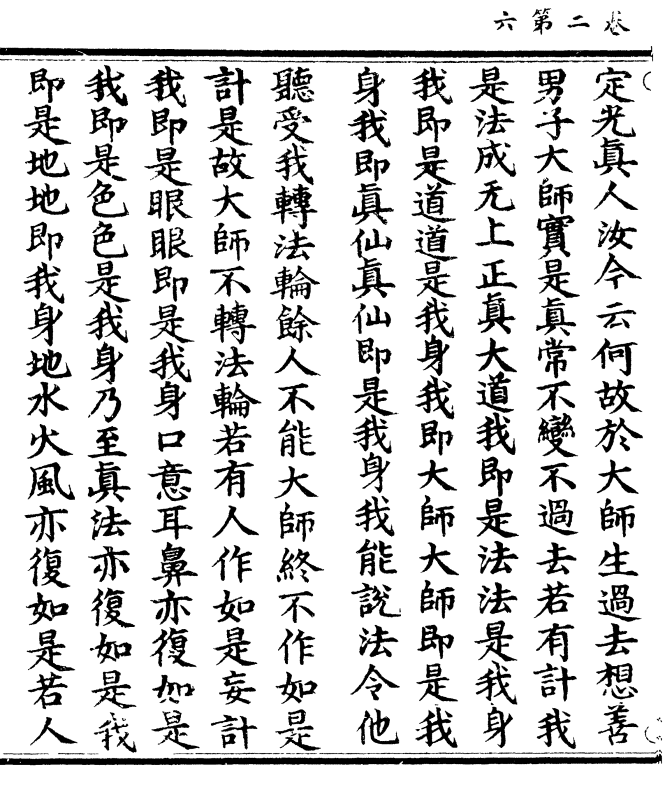 卷二第六
定光真人汝今云何故於大師生過去想善
男子大師實是真常不變不過去若有計我
是法成无上正真大道我即是法法是我身
我即是道道是我身我即大師大師即是我
身我即真仙真仙即是我身我能說法令他
聽受我轉法輪餘人不能大師終不作如是
計是故大師不轉法輪若有人作如是妄計
我即是眼眼即是我身口意耳鼻亦復如是
我即是色色是我身乃至真法亦復如是我
即是地地即我身地水火風亦復如是若人